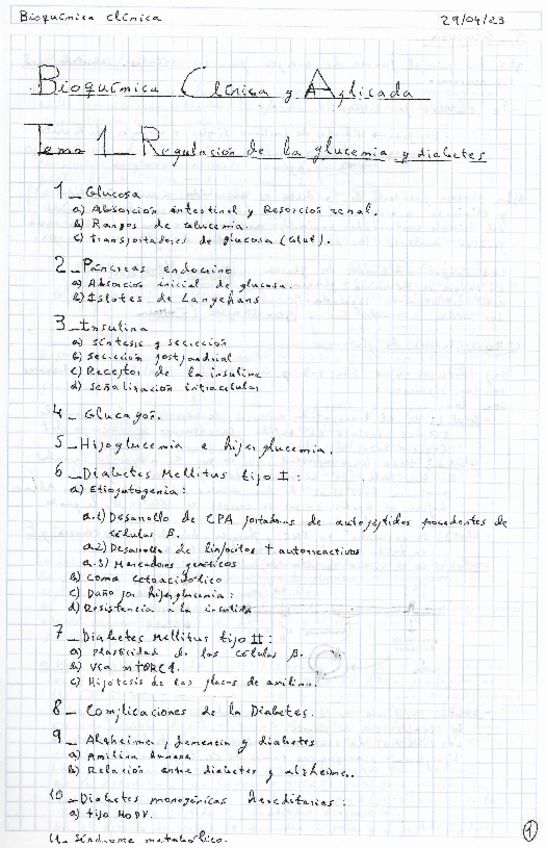 Bioquímica clínica 29/04/23
Bioquímica Clínica y Aplicada
Tema 1_ Regulación de la glucemia y diabetes
1_ Glucosa
a) Absorción intestinal y Resorción renal.
b) Rangos de Glucemia.
c) Transportadores de glucosa (Glut).
2_ Páncreas endocrino
a) Absorción inicial de glucosa.
b) Islotes de Langerhans
3_ Insulina
a) Síntesis y secreción
b) Secreción postprandial
c) Receptor de la insulina
d) Señalización intracelular
4_ Glucagón.
5_ Hipoglucemia e hiperglucemia.
6_ Diabetes Mellitus tipo I:
a) Etiopatogenia:
a.1) Desarrollo de CPA portadoras de autopéptidos procedentes de
células β.
a.2) Desarrollo de linfocitos T autorreactivos
a.3) Marcadores genéticos
b) Coma cetoacidótico
c) Daño por hiperglucemia:
d) Resistencia a la insulina
7_ Diabetes Mellitus tipo II:
a) Plasticidad de las células β.
b) Vía mTORC1.
c) Hipótesis de las placas de amilina.
8_ Complicaciones de la Diabetes.
9_ Alzheimer, demencia y diabetes
a) Amilina humana
b) Relación entre diabetes y alzheimer.
10_ Diabetes monogénicas hereditarias:
a) tipo MODY.
11_ Síndrome metabólico.
1